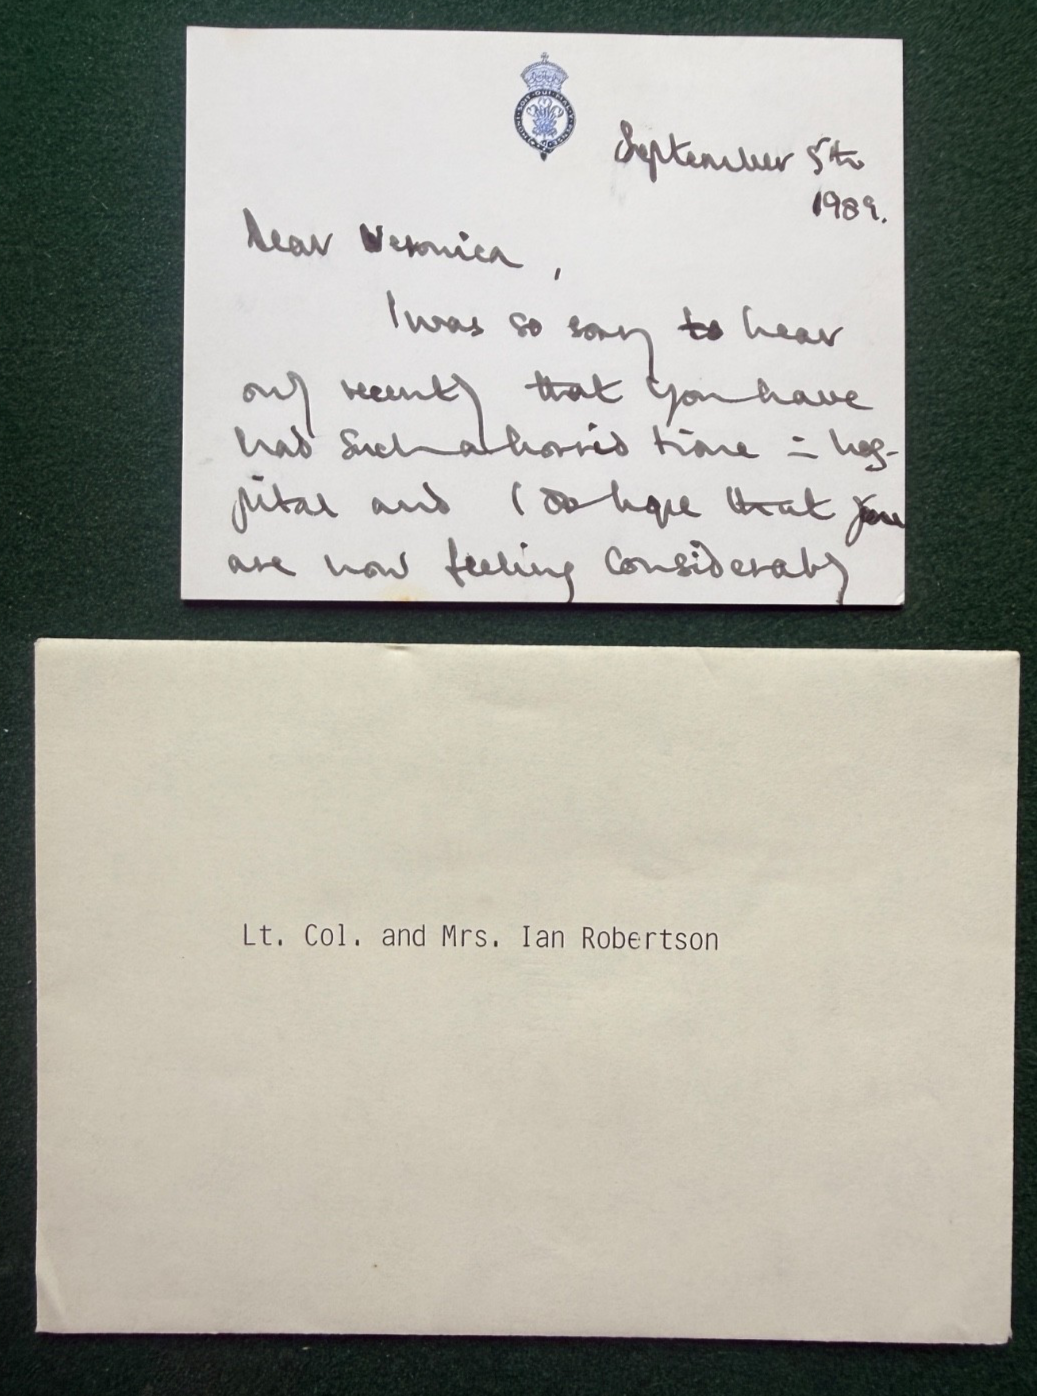 HONI·SOIT·QUI·MAL·Y·PENSE
September 5th
1989.
Dear Veronica,
I was so sorry to hear
only recently that you have
had such a horrid time in hos-
pital and I do hope that you
are now feeling considerably
Lt. Col. and Mrs. Ian Robertson